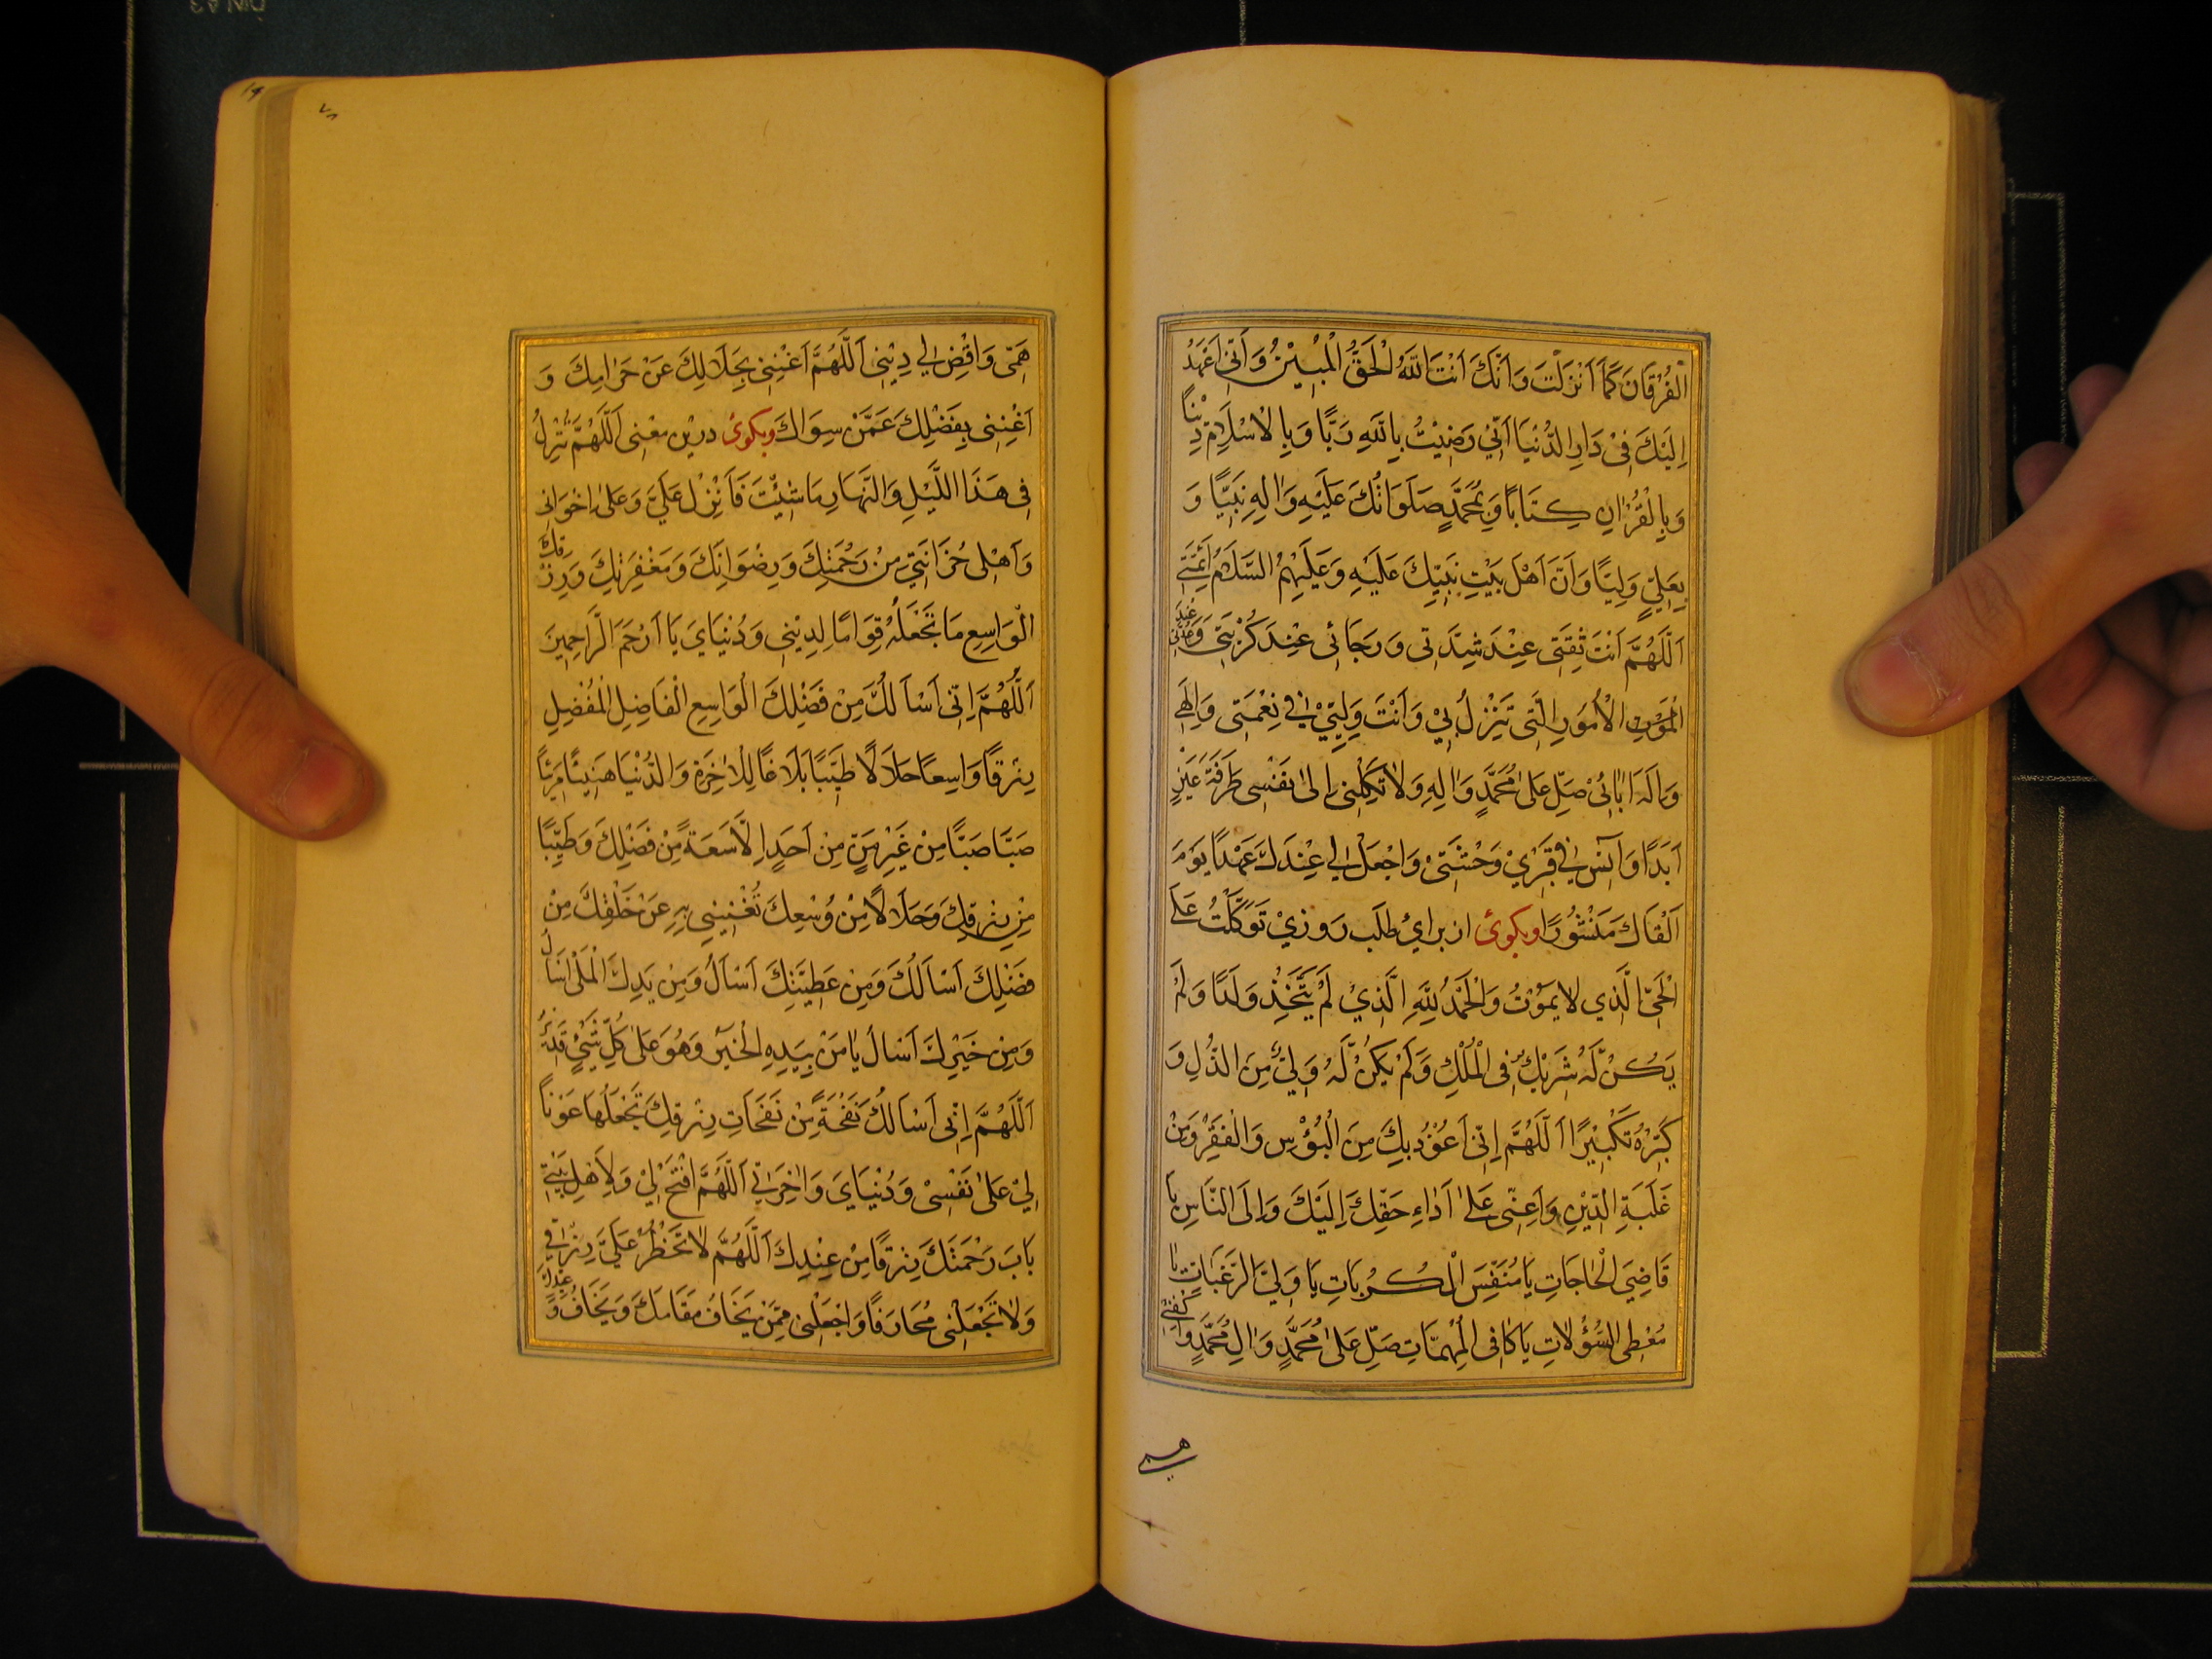 الْفُرْقَانَ كَمَا اَنْزَلْتَ وَاَنَّكَ اَنْتَ اللّٰهُ الْحَقُّ الْمُبِيْنُ وَاَنّٖى اَعْهَدُ
اِلَيْكَ فِىْ دَارِ الدُّنْيَا اَنّٖى رَضِيْتُ بِاللّٰهِ رَبًّا وَبِالْاِسْلَامِ دِيْنًا
وَبِالْقُرْاٰنِ كِتَابًا وَبِمُحَمَّدٍ صَلَوَاتُكَ عَلَيْهِ وَاٰلِهٖ نَبِيًّا وَ
بِعَلِيٍّ وَلِيًّا وَاَنَّ اَهْلَ بَيْتِ نَبِيِّكَ عَلَيْهِ وَعَلَيْهِمُ السَّلَامُ اَئِمَّتٖى
اَللّٰهُمَّ اَنْتَ ثِقَتٖى عِنْدَ شِدَّتٖى وَرَجَائٖى عِنْدَ كُرْبَتٖى وَعُدَّتٖى عِنْدَ
الْاُمُوْرِ الَّتٖى تَنْزِلُ بٖيْ وَاَنْتَ وَلِيّٖيْ فٖى نِعْمَتٖى وَاِلٰهٖى
وَاِلٰهَ اٰبَائٖىْ صَلِّ عَلٰى مُحَمَّدٍ وَاٰلِهٖ وَلَا تَكِلْنٖى اِلٰى نَفْسٖى طَرْفَةَ عَيْنٍ
اَبَدًا وَاٰنِسْ فٖى قَبْرٖيْ وَحْشَتٖىْ وَاجْعَلْ لٖى عِنْدَكَ عَهْدًا يَوْمَ
اَلْقَاكَ مَنْشُوْرًا وبكوئ از براي طلب روزي تَوَكَّلْتُ عَلَى
الْحَيِّ الَّذٖي لَا يَمُوْتُ وَالْحَمْدُ لِلّٰهِ الَّذٖيْ لَمْ يَتَّخِذْ وَلَدًا وَلَمْ
يَكُنْ لَهُ شَرٖيْكٌ فِى الْمُلْكِ وَلَمْ يَكُنْ لَهُ وَلِيٌّ مِنَ الذُّلِّ وَ
كَبِّرْهُ تَكْبِيْرًا اَللّٰهُمَّ اِنّٖى اَعُوْذُ بِكَ مِنَ الْبُؤْسِ وَالْفَقْرِ وَمِنْ
غَلَبَةِ الدَّيْنِ وَاَعِنّٖى عَلٰى اَدَاءِ حَقِّكَ اِلَيْكَ وَاِلَى النَّاسِ يَا
قَاضِيَ الْحَاجَاتِ يَا مُنَفِّسَ الْكُرُبَاتِ يَا وَلِيَّ الرَّغَبَاتِ يَا
مُعْطِى السُّؤُلَاتِ يَا كَافِى الْمُهِمَّاتِ صَلِّ عَلٰى مُحَمَّدٍ وَاٰلِ مُحَمَّدٍ وَاكْفِنٖى
همّى
٧٨
هَمّٖى وَاقْضِ لٖى دَيْنٖى اَللّٰهُمَّ اَغْنِنٖى بِحَلَالِكَ عَنْ حَرَامِكَ وَ
اَغْنِنٖى بِفَضْلِكَ عَمَّنْ سِوَاكَ وبكوئ درين معنى اَللّٰهُمَّ تُنْزِلُ
فٖى هٰذَا اللَّيْلِ وَالنَّهَارِ مَا شِئْتَ فَاَنْزِلْ عَلَيَّ وَعَلٰى اِخْوَانٖى
وَاَهْلٖى حُزَانَتٖى مِنْ رَحْمَتِكَ وَرِضْوَانِكَ وَمَغْفِرَتِكَ وَرِزْقِكَ
الْوَاسِعِ مَا تَجْعَلُهُ قِوَامًا لِدٖيْنٖى وَدُنْيَايَ يَا اَرْحَمَ الرَّاحِمِيْنَ
اَللّٰهُمَّ اِنّٖى اَسْاَلُكَ مِنْ فَضْلِكَ الْوَاسِعِ الْفَاضِلِ الْمُفْضِلِ
رِزْقًا وَاسِعًا حَلَالًا طَيِّبًا بَلَاغًا لِلْاٰخِرَةِ وَالدُّنْيَا هَنِيْئًا مَرٖيْئًا
صَبًّا صَبًّا مِنْ غَيْرِ مَنٍّ مِنْ اَحَدٍ اِلَّا سَعَةً مِنْ فَضْلِكَ وَطَيِّبًا
مِنْ رِزْقِكَ وَحَلَالًا مِنْ وُسْعِكَ تُغْنِيْنٖى بِهٖ عَنْ خَلْقِكَ مِنْ
فَضْلِكَ اَسْاَلُكَ وَمِنْ عَطِيَّتِكَ اَسْاَلُ وَمِنْ يَدِكَ الْمَلْاٰى اَسْاَلُ
وَمِنْ خَيْرِكَ اَسْاَلُ يَا مَنْ بِيَدِهِ الْخَيْرُ وَهُوَ عَلٰى كُلِّ شَيْءٍ قَدٖيْرٌ
اَللّٰهُمَّ اِنّٖى اَسْاَلُكَ نَفْحَةً مِنْ نَفَحَاتِ رِزْقِكَ تَجْعَلُهَا عَوْنًا
لٖيْ عَلٰى نَفْسٖىْ وَدُنْيَايَ وَاٰخِرَتٖى اَللّٰهُمَّ افْتَحْ لٖيْ وَلِاَهْلِ بَيْتٖى
بَابَ رَحْمَتِكَ رِزْقًا مِنْ عِنْدِكَ اَللّٰهُمَّ لَا تَحْظُرْ عَلَيَّ رِزْقٖى
وَلَا تَجْعَلْنٖى مُحَارَفًا وَاجْعَلْنٖى مِمَّنْ يَخَافُ مَقَامَكَ وَيَخَافُ